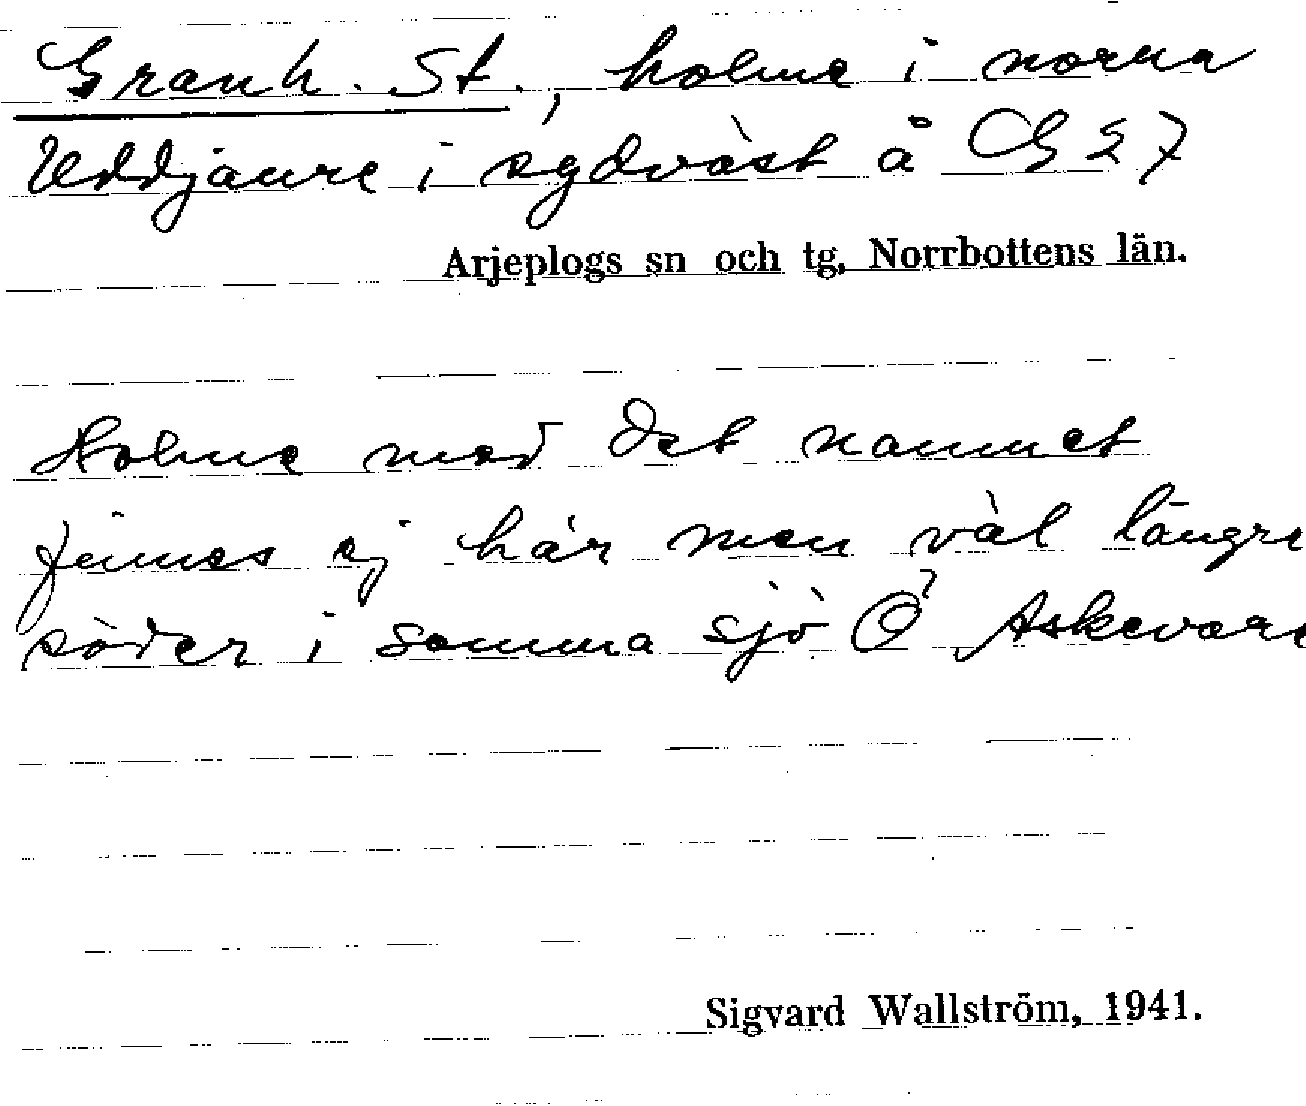 Granh. St., holme i norra
Uddjaure i sydväst å G 27
Arjeplogs sn och tg, Norrbottens län.
Holme med det namnet
finnes ej här men väl längre
söder i samma sjö Ö Askevare
Sigvard Wallström, 1941.